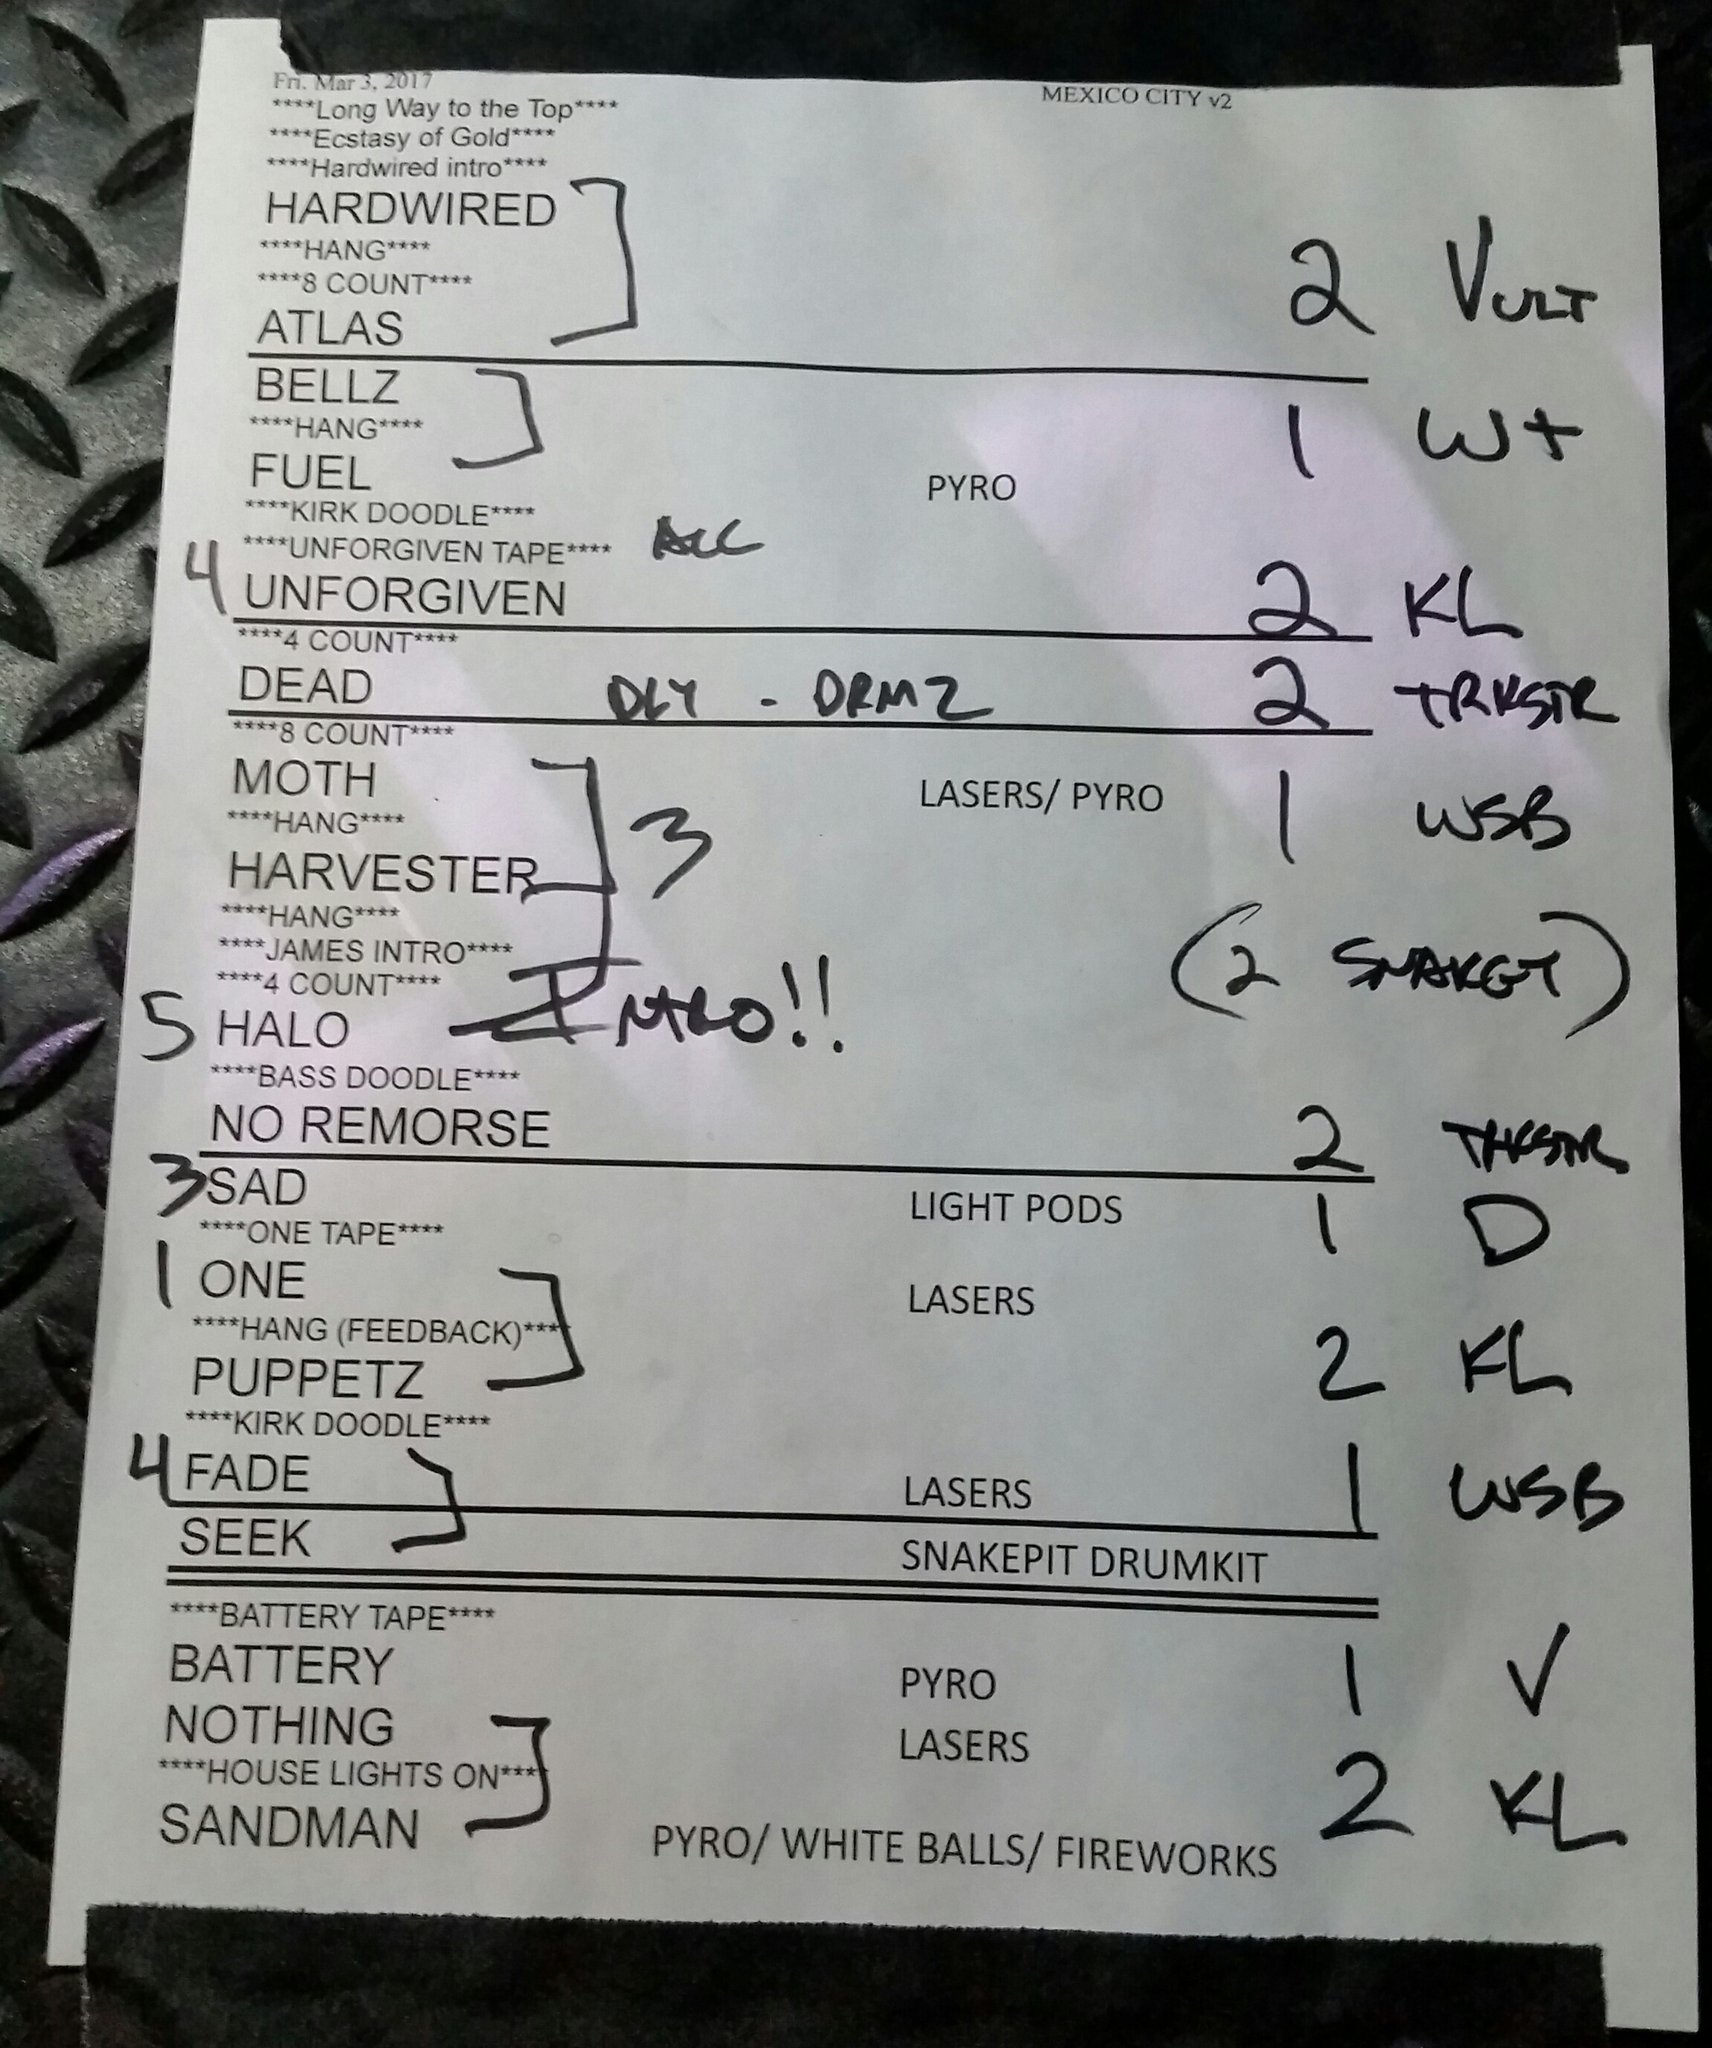 Fri. Mar 3, 2017 MEXICO CITY v2
****Long Way to the Top****
****Ecstasy of Gold****
****Hardwired intro****
HARDWIRED
****HANG****
****8 COUNT****
ATLAS 2 VULT
BELLZ
****HANG**** 1 W+
FUEL PYRO
****KIRK DOODLE****
****UNFORGIVEN TAPE**** ACC
4 UNFORGIVEN 2 KL
****4 COUNT****
DEAD DLY - DRMZ 2 TRKSTR
****8 COUNT****
MOTH LASERS/ PYRO 1 WSB
****HANG**** 3
HARVESTER
****HANG****
****JAMES INTRO**** (2 )
****4 COUNT****
5 HALO INTRO!!
****BASS DOODLE****
NO REMORSE 2 TRKSTR
3 SAD LIGHT PODS 1 D
****ONE TAPE****
1 ONE LASERS
****HANG (FEEDBACK)****
PUPPETZ 2 KL
****KIRK DOODLE****
4 FADE LASERS 1 WSB
SEEK SNAKEPIT DRUMKIT
****BATTERY TAPE****
BATTERY PYRO 1 V
NOTHING LASERS
****HOUSE LIGHTS ON****
SANDMAN PYRO/ WHITE BALLS/ FIREWORKS 2 KL